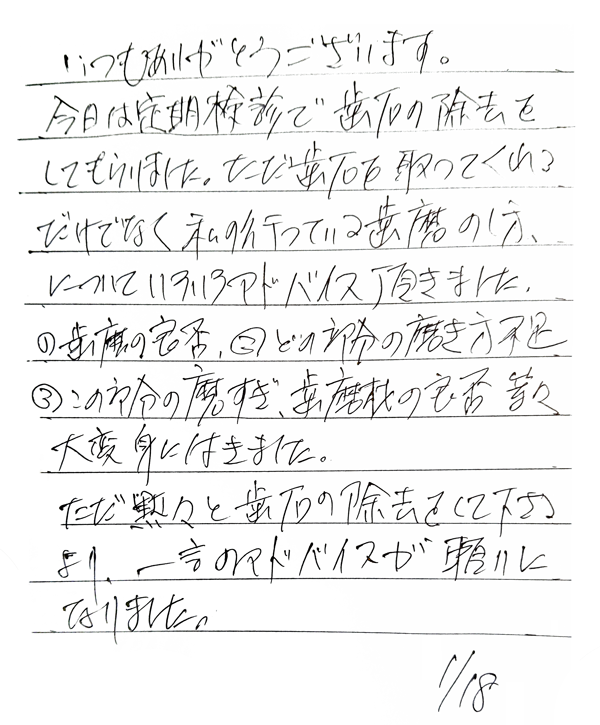 いつもありがとうございます。
今日は定期検診で歯石の除去を
してもらいました。ただ歯石を取ってくれる
だけでなく私の行っている歯磨のし方、
についていろいろアドバイス頂きました.
①歯磨の 否、②どの部分の磨き方不足
③この部分の磨すぎ、歯磨 の 否 等々
大変身に きました。
ただ黙々と歯石の除去をして下さる
より、一言のアドバイスが 有りに
なりました。
1/18